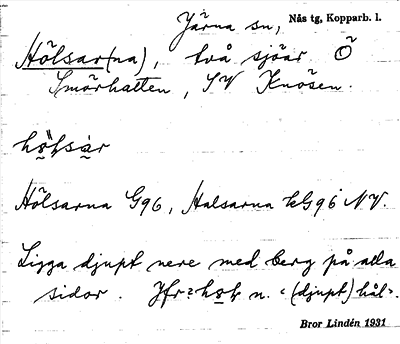 Järna sn, Nås tg, Kopparb. l.
Hölsar(na), två sjöar Ö
Smörhatten, SV Knösen.
Hölsarna G96, Halsarna kG96 NV.
Ligga djupt nere med berg på alla
sidor. Jfr n. "(djupt) hål".
Bror Lindén 1931